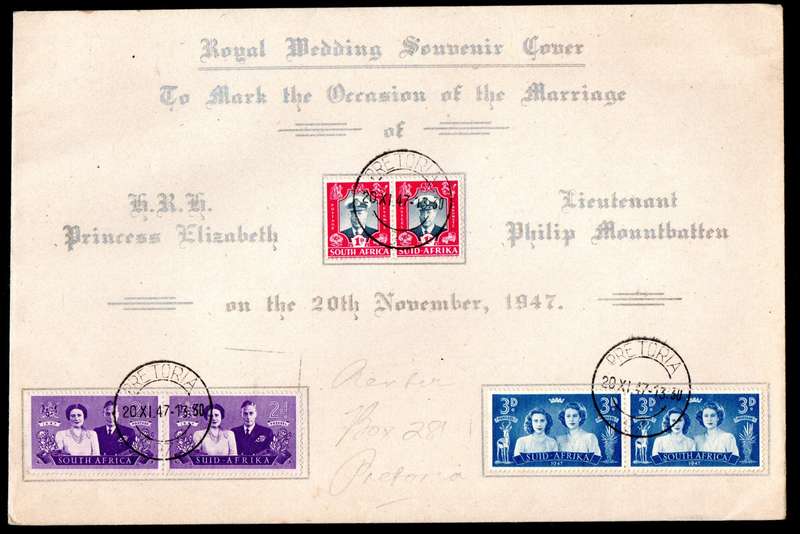 Royal Wedding Souvenir Cover
To Mark the Occasion of the Marriage
of
PRETORIA
20·XI.47-13.30
1D
SOUTH AFRICA SUID-AFRIKA
H.R.H.
Princess Elizabeth
Lieutenant
Philip Mountbatten
on the 20th November, 1947.
PRETORIA
20 XI.47-13.30
2D
SOUTH AFRICA SUID-AFRIKA
Box 281
Pretoria
PRETORIA
20 XI.47-13.30
3D 3D 3D 3D
SUID-AFRIKA SOUTH AFRICA
1947 1947